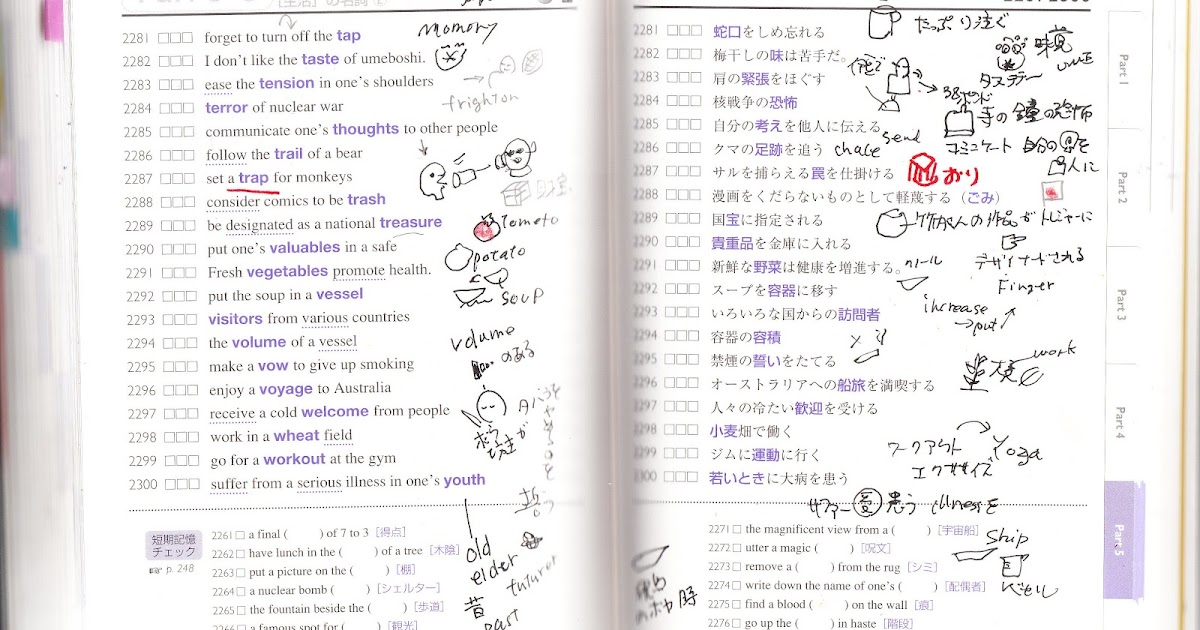 [生活]の名詞
2281 □□□ forget to turn off the tap
2282 □□□ I don't like the taste of umeboshi.
2283 □□□ ease the tension in one's shoulders
2284 □□□ terror of nuclear war
2285 □□□ communicate one's thoughts to other people
2286 □□□ follow the trail of a bear
2287 □□□ set a trap for monkeys
2288 □□□ consider comics to be trash
2289 □□□ be designated as a national treasure
2290 □□□ put one's valuables in a safe
2291 □□□ Fresh vegetables promote health.
2292 □□□ put the soup in a vessel
2293 □□□ visitors from various countries
2294 □□□ the volume of a vessel
2295 □□□ make a vow to give up smoking
2296 □□□ enjoy a voyage to Australia
2297 □□□ receive a cold welcome from people
2298 □□□ work in a wheat field
2299 □□□ go for a workout at the gym
2300 □□□ suffer from a serious illness in one's youth
momory
frighton
tomato
potato
soup
volume
のある
old
elder
昔
past
短期記憶
チェック
p. 248
2261□ a final ( ) of 7 to 3 [得点]
2262□ have lunch in the ( ) of a tree [木陰]
2263□ put a picture on the ( ) [棚]
2264□ a nuclear bomb ( ) [シェルター]
2265□ the fountain beside the ( ) [歩道]
2266□ a famous spot for ( ) [観光]
2281 □□□ 蛇口をしめ忘れる
2282 □□□ 梅干しの味は苦手だ。
2283 □□□ 肩の緊張をほぐす
2284 □□□ 核戦争の恐怖
2285 □□□ 自分の考えを他人に伝える
2286 □□□ クマの足跡を追う
2287 □□□ サルを捕らえる罠を仕掛ける
2288 □□□ 漫画をくだらないものとして軽蔑する（ごみ）
2289 □□□ 国宝に指定される
2290 □□□ 貴重品を金庫に入れる
2291 □□□ 新鮮な野菜は健康を増進する。
2292 □□□ スープを容器に移す
2293 □□□ いろいろな国からの訪問者
2294 □□□ 容器の容積
2295 □□□ 禁煙の誓いをたてる
2296 □□□ オーストラリアへの船旅を満喫する
2297 □□□ 人々の冷たい歓迎を受ける
2298 □□□ 小麦畑で働く
2299 □□□ ジムに運動に行く
2300 □□□ 若いときに大病を患う
たっぷり注ぐ
味覚
寺の鐘の恐怖
コミニケート 自分の
人に
send
chace
おり
デザイナードされる
Finger
increase
→put
work
ワークアウト
Yoga
エクササイズ
サファー 患う illnessを
Ship
2271□ the magnificent view from a ( ) [宇宙船]
2272□ utter a magic ( ) [呪文]
2273□ remove a ( ) from the rug [シミ]
2274□ write down the name of one's ( ) [配偶者]
2275□ find a blood ( ) on the wall [痕]
2276□ go up the ( ) in haste [階段]
Part 1
Part 2
Part 3
Part 4
Part 5